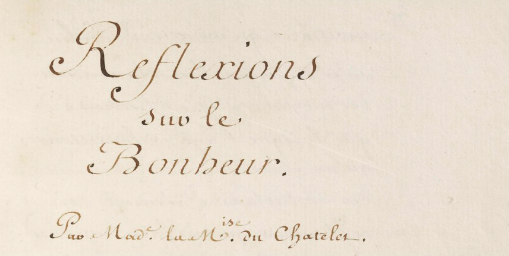 Reflexions
sur le
Bonheur.
Par Mad.e la M.ise du Chatelet.